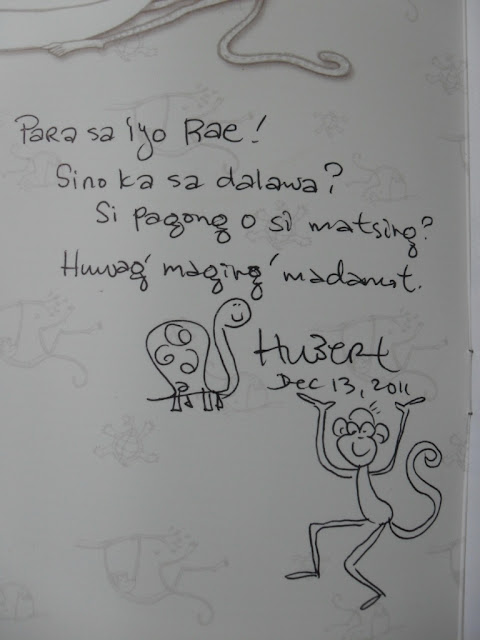 Para sa iyo Rae!
Sino ka sa dalawa?
Si pagong o si matsing?
Huwag maging madamot.
Hubert
Dec 13, 2011